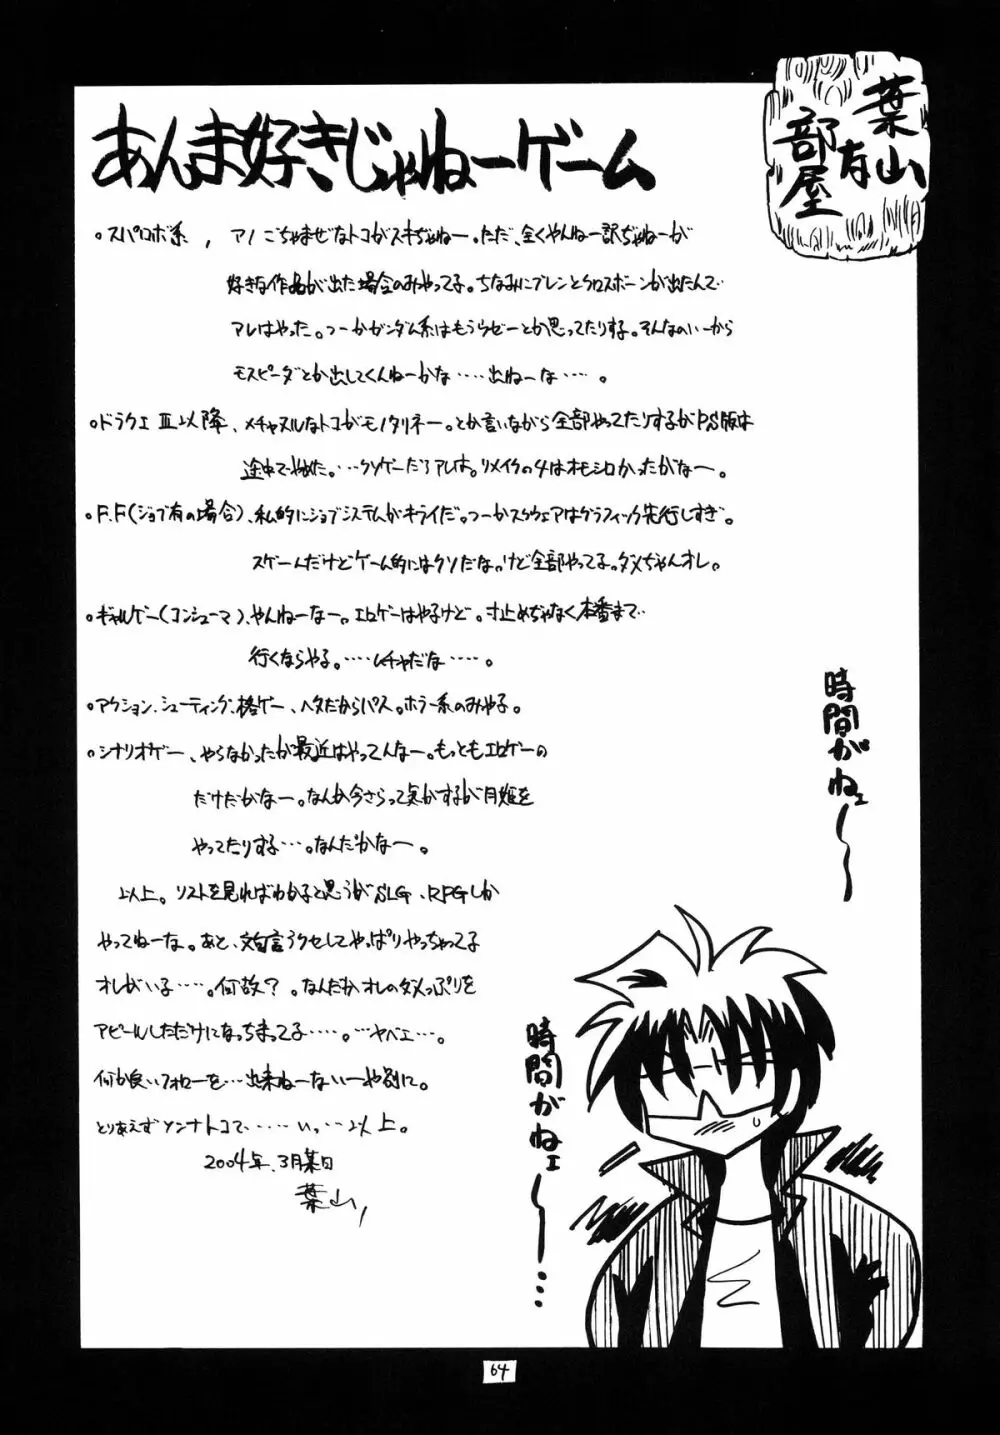 葉山
有
部屋
あんま好きじゃねーゲーム
・スパロボ系, アノごちゃまぜなトコがスキぢゃねー。ただ、全くやんねー訳ぢゃねーが
好きな作品が出た場合のみやってる。ちなみにブレンとクロスボーンが出たんで…
アレはやった。つーかガンダム系はもううぜーとか思ってたりする。そんなのいーから
モスピーダとか出してくんねーかな……出ねーな……。
・ドラクエⅢ以降、メチャヌルなトコがモノタリネー。とか言いながら全部やってたりするがPS版は
途中でやめた。…クソゲーだろアレは。リメイクの4はオモシロかったがなー。
・F.F(ジョブ有の場合)、私的にジョブシステムがキライだ。つーかスクウェアはグラフィック先行しすぎ。
スゲーんだけどゲーム的にはクソだな。けど全部やってる。ダメぢゃんオレ。
・ギャルゲー(コンシューマ)、やんねーなー。エロゲーはやるけど。寸止めぢゃなく本番まで…
行くならやる。……ムチャだな……。
・アクション、シューティング、格ゲー、ヘタだからパス。ホラー系のみやる。
・シナリオゲー、やらなかったが最近はやってんなー。もっともエロゲーの
だけだがなー。なんか今さらって気がするが月姫を
やってたりする…。なんだかなー。
以上。リストを見ればわかると思うがSLG、RPGしか
やってねーな。あと、文句言うクセしてやっぱりやっちゃってる
オレがいる…。何故?。なんだかオレのダメっぷりを
アピールしただけになっちまってる……。…ヤベェ…。
何か良いフォローを…出来ねーないーや別に。
とりあえずソンナトコで……いっ…以上。
2004年、3月某日
葉山,
時間がねェ〜〜
時間がねェ〜〜…
64